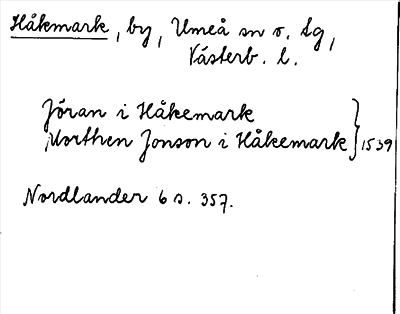 Håkmark, by, Umeå sn o. tg,
Västerb. l.
Jöran i Håkemark
Morthen Jonson i Håkemark } 1539
Nordlander 6 s. 357.